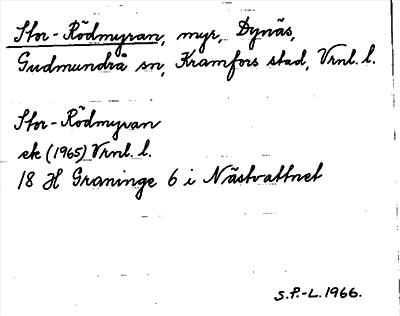 Stor-Rödmyran, myr, Dynäs,
Gudmundrå sn, Kramfors stad, Vrnl. l.
Stor-Rödmyran
ek (1965) Vrnl. l.
18 H Graninge 6 i Nästvattnet
S.P.-L. 1966.